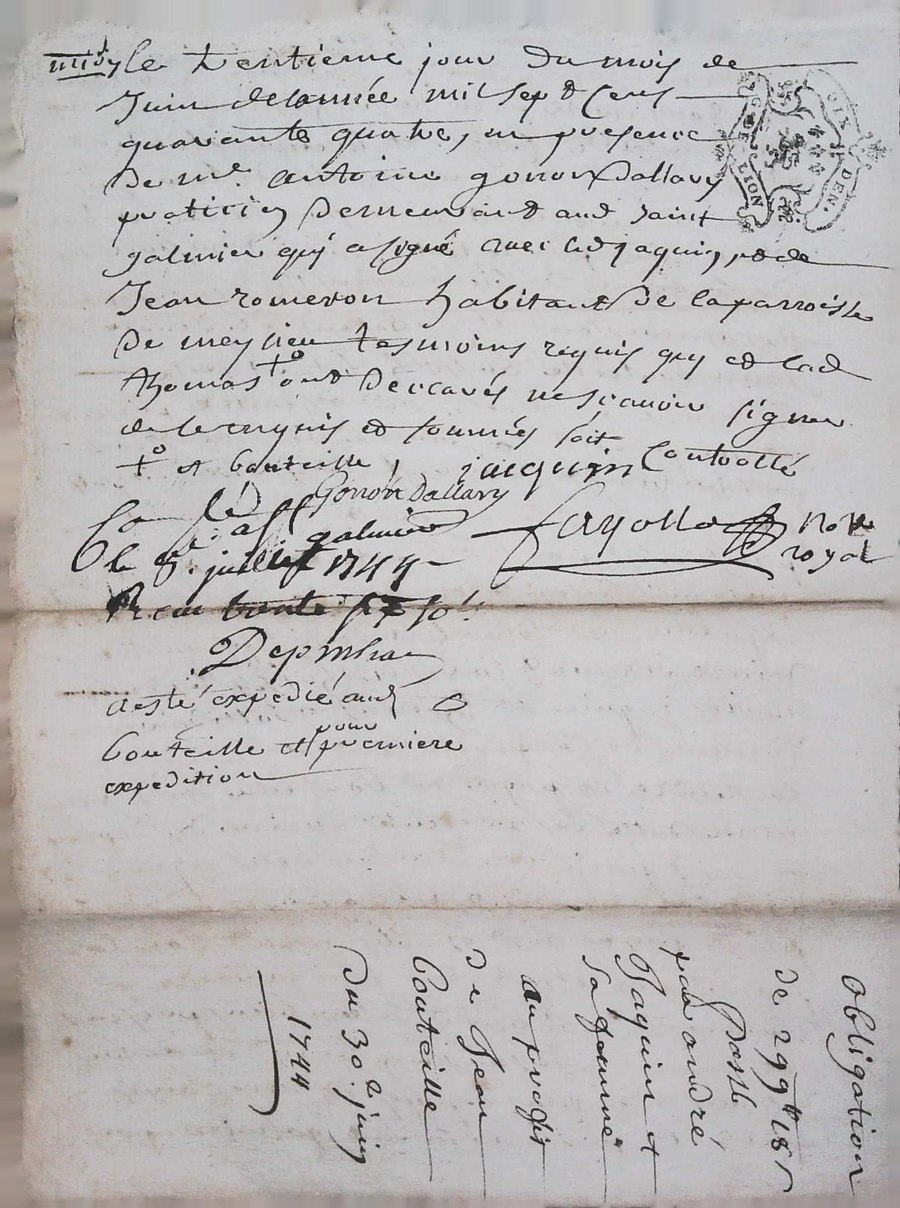 midy le trentieme jour du mois de
Juin de lannée mil sept Cens
quarante quatre, en presence
De me antoine gonon Dallary
praticien Demeurant aud saint
galmier quy a signé avec led jaquin, et de
Jean romeron habitant De la parroisse
De meylieu tesmoins requis quy et lad
thomas ont Declarés ne scavoir signer
de ce enquis et sommés soit Controllé
et bouteille jacquin
Gonon Dallary
galmier
le 8e. juillet 1744
fayolle Nore
royal
Recu trente six sols
aesté expedié aud
bouteille et pour premiere
expedition
G. DE LION
DEN.
obligation
de 299tt 18s
Passée
par andré
Jaquin et
sa femme
au profit
de Jean
bouteille
Du 30e juin
1744